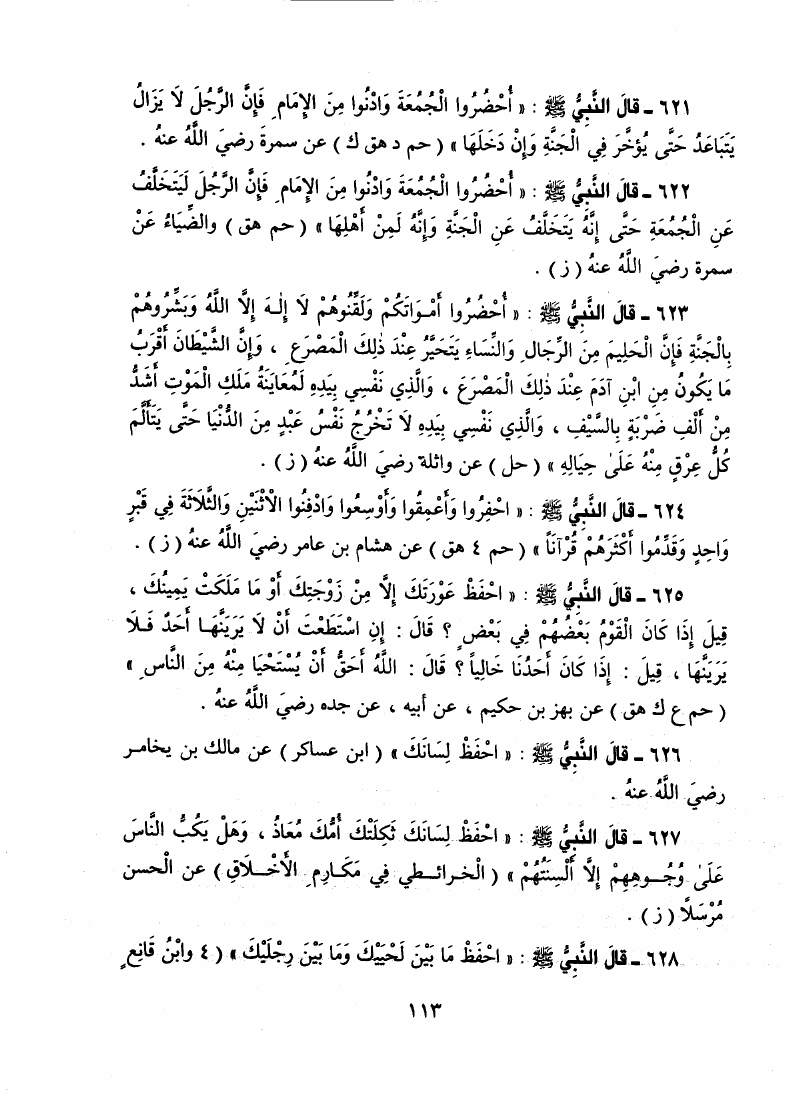 ٦٢١ ـ قالَ النَّبِيُّ ﷺ : « أُحْضُرُوا الْجُمُعَةَ وَادْنُوا مِنَ الإِمَامِ فَإِنَّ الرَّجُلَ لَا يَزَالُ
يَتَبَاعَدُ حَتَّى يُؤَخَّرَ فِي الْجَنَّةِ وَإِنْ دَخَلَهَا » ( حم د هق ك ) عن سمرةَ رضيَ اللَّهُ عنهُ .
٦٢٢ ـ قالَ النَّبِيُّ ﷺ : « أُحْضُرُوا الْجُمُعَةَ وَادْنُوا مِنَ الإِمَامِ فَإِنَّ الرَّجُلَ لَيَتَخَلَّفُ
عَنِ الْجُمُعَةِ حَتَّى إِنَّهُ يَتَخَلَّفُ عَنِ الْجَنَّةِ وَإِنَّهُ لَمِنْ أَهْلِهَا » ( حم هق ) والضِّيَاءُ عَنْ
سمرة رضيَ اللَّهُ عنهُ ( ز ) .
٦٢٣ ـ قالَ النَّبِيُّ ﷺ : « أُحْضُرُوا أَمْوَاتَكُمْ وَلَقِّنُوهُمْ لَا إِلٰهَ إِلَّا اللَّهُ وَبَشِّرُوهُمْ
بِالْجَنَّةِ فَإِنَّ الْحَلِيمَ مِنَ الرِّجَالِ وَالنِّسَاءِ يَتَحَيَّرُ عِنْدَ ذٰلِكَ الْمَصْرَعِ ، وَإِنَّ الشَّيْطَانَ أَقْرَبُ
مَا يَكُونُ مِنِ ابْنِ آدَمَ عِنْدَ ذٰلِكَ الْمَصْرَعِ ، وَالَّذِي نَفْسِي بِيَدِهِ لَمُعَايَنَةُ مَلَكِ الْمَوْتِ أَشَدُّ
مِنْ أَلْفِ ضَرْبَةٍ بِالسَّيْفِ ، وَالَّذِي نَفْسِي بِيَدِهِ لَا تَخْرُجُ نَفْسُ عَبْدٍ مِنَ الدُّنْيَا حَتَّى يَتَأَلَّمَ
كُلُّ عِرْقٍ مِنْهُ عَلَى حِيَالِهِ » ( حل ) عن واثلةَ رضيَ اللَّهُ عنهُ ( ز ) .
٦٢٤ ـ قالَ النَّبِيُّ ﷺ : « احْفِرُوا وَأَعْمِقُوا وَأَوْسِعُوا وَادْفِنُوا الاثْنَيْنِ وَالثَّلَاثَةَ فِي قَبْرٍ
وَاحِدٍ وَقَدِّمُوا أَكْثَرَهُمْ قُرْآناً » ( حم ٤ هق ) عن هشام بن عامر رضيَ اللَّهُ عنهُ ( ز ) .
٦٢٥ ـ قالَ النَّبِيُّ ﷺ : « احْفَظْ عَوْرَتَكَ إِلَّا مِنْ زَوْجَتِكَ أَوْ مَا مَلَكَتْ يَمِينُكَ ،
قِيلَ إِذَا كَانَ الْقَوْمُ بَعْضُهُمْ فِي بَعْضٍ ؟ قَالَ : إِنِ اسْتَطَعْتَ أَنْ لَا يَرَيَنَّهَا أَحَدٌ فَلَا
يَرَيَنَّهَا ، قِيلَ : إِذَا كَانَ أَحَدُنَا خَالِياً ؟ قَالَ : اللَّهُ أَحَقُّ أَنْ يُسْتَحْيَا مِنْهُ مِنَ النَّاسِ »
( حم ع ك هق ) عن بهز بن حكيم ، عن أبيه ، عن جده رضيَ اللَّهُ عنهُ .
٦٢٦ ـ قالَ النَّبِيُّ ﷺ : « احْفَظْ لِسَانَكَ » ( ابن عساكر ) عن مالك بن يخامر
رضيَ اللَّهُ عنهُ .
٦٢٧ ـ قالَ النَّبِيُّ ﷺ : « احْفَظْ لِسَانَكَ ثَكِلَتْكَ أُمُّكَ مُعَاذُ ، وَهَلْ يَكُبُّ النَّاسَ
عَلَى وُجُوهِهِمْ إِلَّا أَلْسِنَتُهُمْ » ( الْخرائطي فِي مَكَارِمِ الأَخْلَاقِ ) عن الْحسن
مُرْسَلًا ( ز ) .
٦٢٨ ـ قالَ النَّبِيُّ ﷺ : « احْفَظْ مَا بَيْنَ لَحْيَيْكَ وَمَا بَيْنَ رِجْلَيْكَ » ( ٤ وابْنُ قَانِعٍ
١١٣